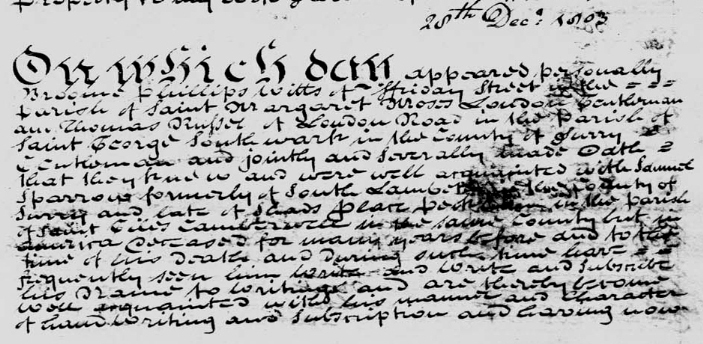 28th Decr. 1803
On which day appeared personally
Broome Phillips Witts of Friday Street in the
Parish of Saint Margaret Moses London Gentleman
and Thomas Russel of London Road in the Parish of
Saint George Southwark in the County of Surry
Gentleman and jointly and severally made Oath
that they knew and were well acquainted with Samuel
Sparrow formerly of South Lambeth in the County of
Surry and late of Shads place in the Parish
of Saint Giles Camberwell in the same County but in
America deceased for many years before and to the
time of his Death and during such time have
frequently seen him write and write and subscribe
his Name to Writings and are thereby become
well acquainted with his manner and Character
of handwriting and Subscription and having now